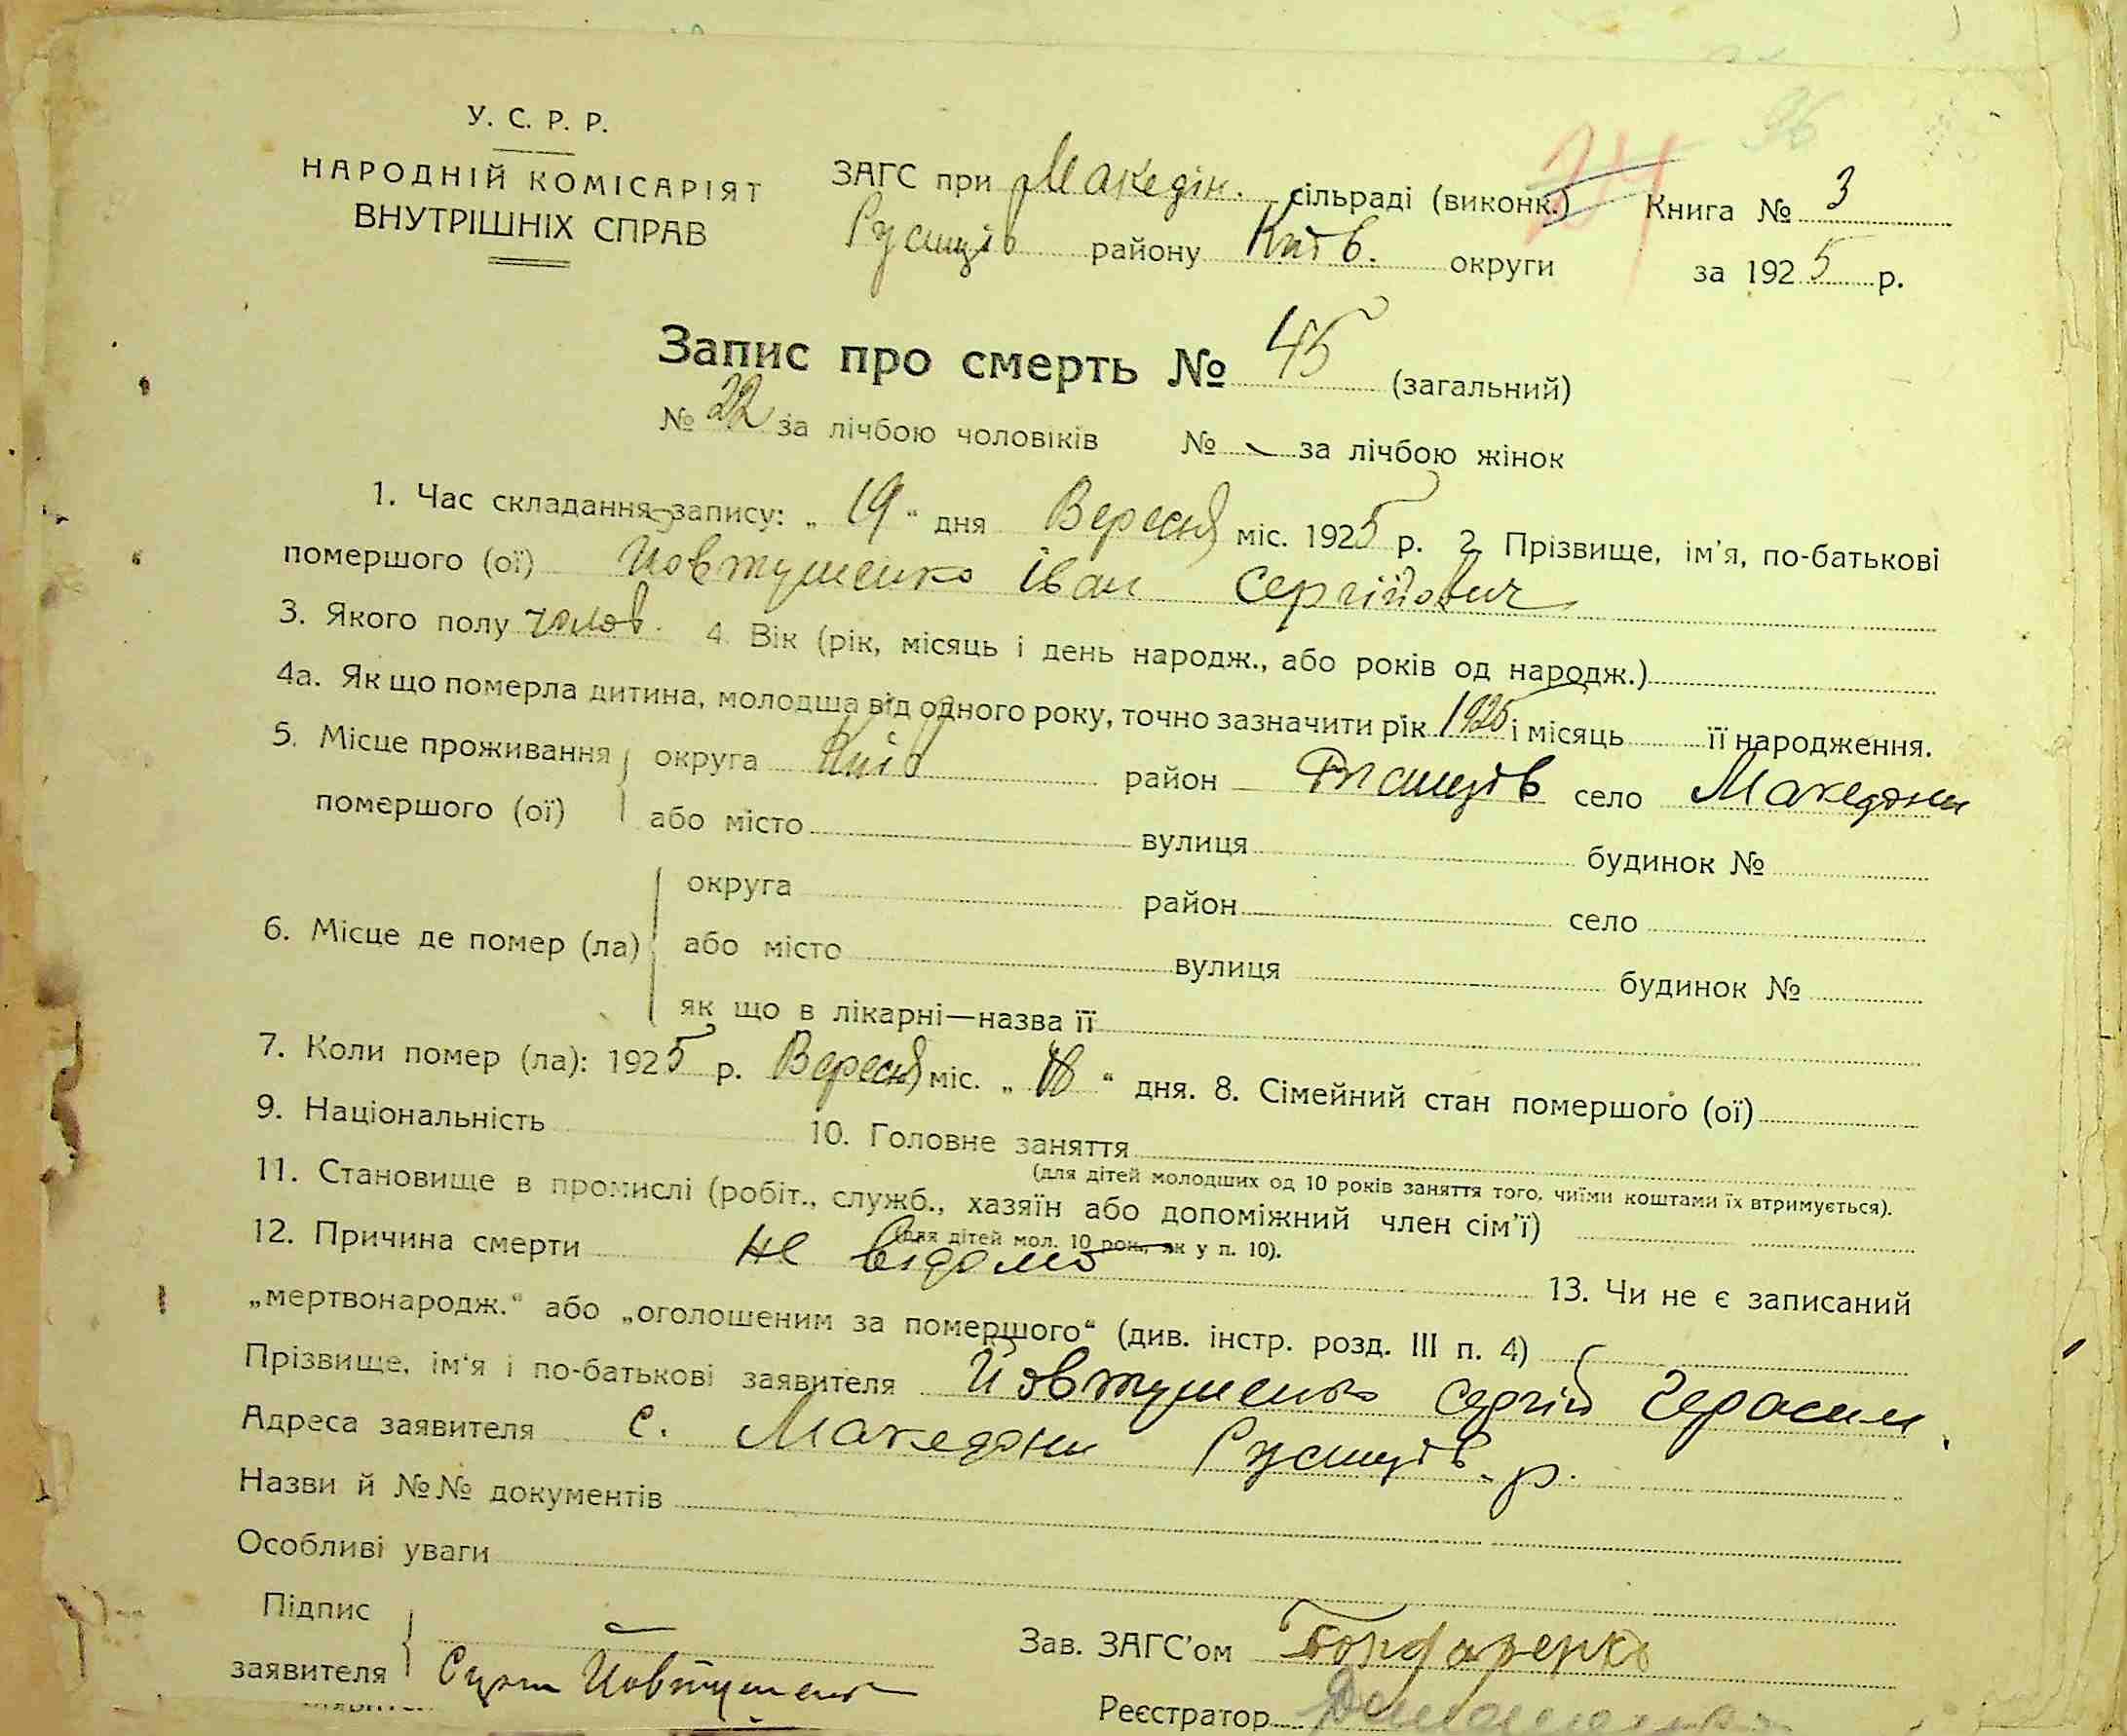 96
У. С. Р. Р.
НАРОДНІЙ КОМІСАРІЯТ
ВНУТРІШНІХ СПРАВ
ЗАГС при Македін. сільраді (виконк.) Книга № 3
Русищів району Київ. округи за 1925 р.
Запис про смерть № 45 (загальний)
№ 22 за лічбою чоловіків № за лічбою жінок
1. Час складання запису: „ 19 “ дня Вересня міс. 1925 р. 2. Прізвище, ім'я, по-батькові
помершого (ої) Йовтушенко Іван Сергійович
3. Якого полу чолов. 4. Вік (рік, місяць і день народж., або років од народж.)
4а. Як що померла дитина, молодша від одного року, точно зазначити рік 1925 і місяць її народження.
5. Місце проживання округа Київ район село Македони
помершого (ої) або місто вулиця будинок №
округа район село
6. Місце де помер (ла) або місто вулиця будинок №
як що в лікарні—назва її
7. Коли помер (ла): 1925 р. Вересня міс. „ 18 “ дня. 8. Сімейний стан помершого (ої)
9. Національність 10. Головне заняття
(для дітей молодших од 10 років заняття того, чиїми коштами їх втримується).
11. Становище в промислі (робіт., служб., хазяїн або допоміжний член сім'ї)
(для дітей мол. 10 рок., як у п. 10).
12. Причина смерти не відомо 13. Чи не є записаний
„мертвонародж.“ або „оголошеним за помершого“ (див. інстр. розд. III п. 4)
Прізвище, ім'я і по-батькові заявителя Йовтушенко Сергій Герасим
Адреса заявителя с. Македони Русищів. р.
Назви й №№ документів
Особливі уваги
Підпис
заявителя Йовтушенко
Зав. ЗАГС'ом Бондаренко
Реєстратор